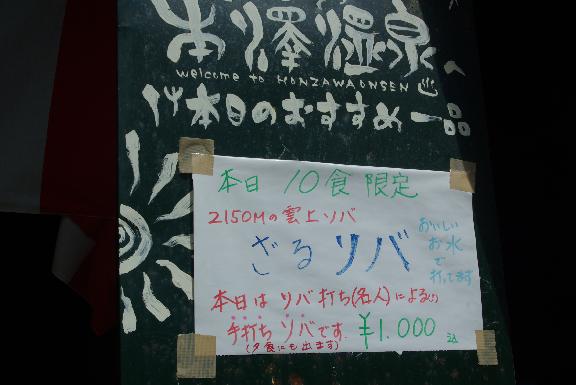 本澤温泉へ
welcome to HONZAWAONSEN
本日のおすすめ一品
本日 10食 限定
2150Mの雲上ソバ
ざるソバ
おいしい
お水
で
打ってます
本日は ソバ打ち(名人)による(?)
手打ち ソバです.
(夕食にも出ます)
¥1.000 込